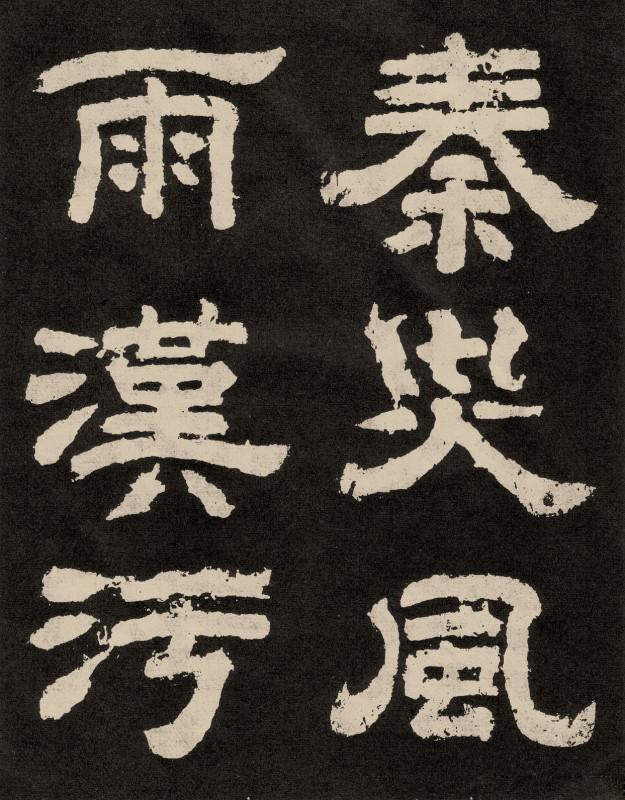 秦災風
雨漢污